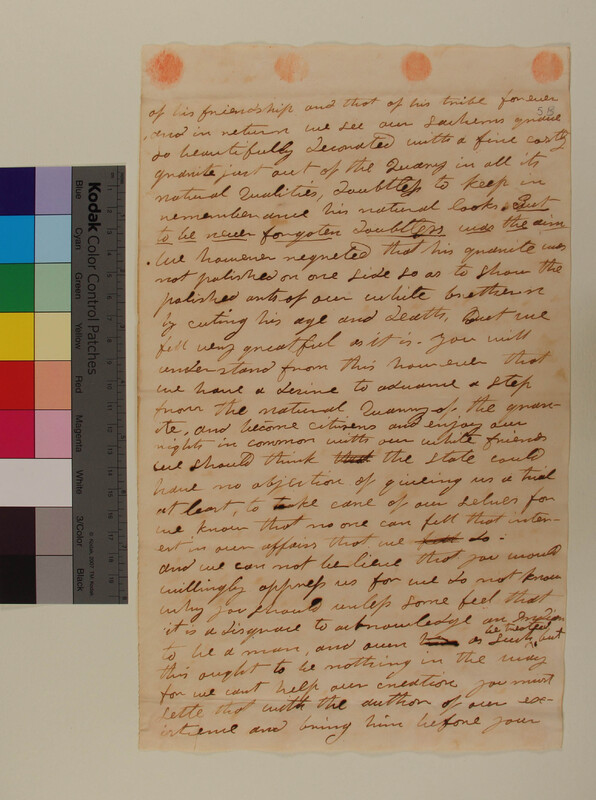 58
of his friendship and that of his tribe forever
and in return we see our Sachems grave
so beautifully decorated with a fine costly
granite just out of the Quarry in all its
natural Qualities, doubtless to keep in
remembrance his natural looks. But
to be never forgoten doubtless was the aim
We however regreted that his granite was
not polished on one side so as to show the
polished arts of our white bretheren
by cuting his age and death, But we
fell very greatful as it is. you will
understand from this however that
we have a desire to advance a step
from the natural Quarry of the gran-
ite, and become citizens and enjoy our
rights in common with our white friends
we should think that the State could
have no objection of giveing us a trial
at least, to take care of our selves for
we know that no one can fell that inter-
est in our affairs that we do.
and we can not believe that you would
willingly oppress us for we do not know
why you should unless some feel that
it is a disgrace to acknowledge an Indian
to be a man, and own as be treated such, but
this ought to be nothing in the way
for we cant help our creation you must
settle that with the author of our ex-
istience and bring him before your
Kodak Color Control Patches
Blue
Cyan
Green
Yellow
Red
Magenta
White
3/Color
Black